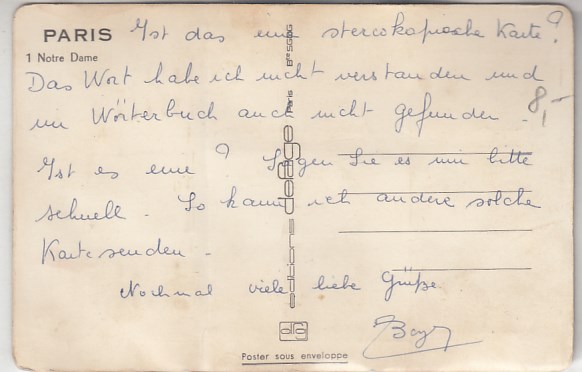 PARIS
1 Notre Dame
Ist das eine stereokopische Karte?
Das Wort habe ich nicht verstanden und
im Wörterbuch auch nicht gefunden.
8,-
Ist es eine? Sagen Sie es mir bitte
schnell. So kann ich andere solche
Karte senden.
Nochmal viele liebe Grüße
Poster sous enveloppe
Paris